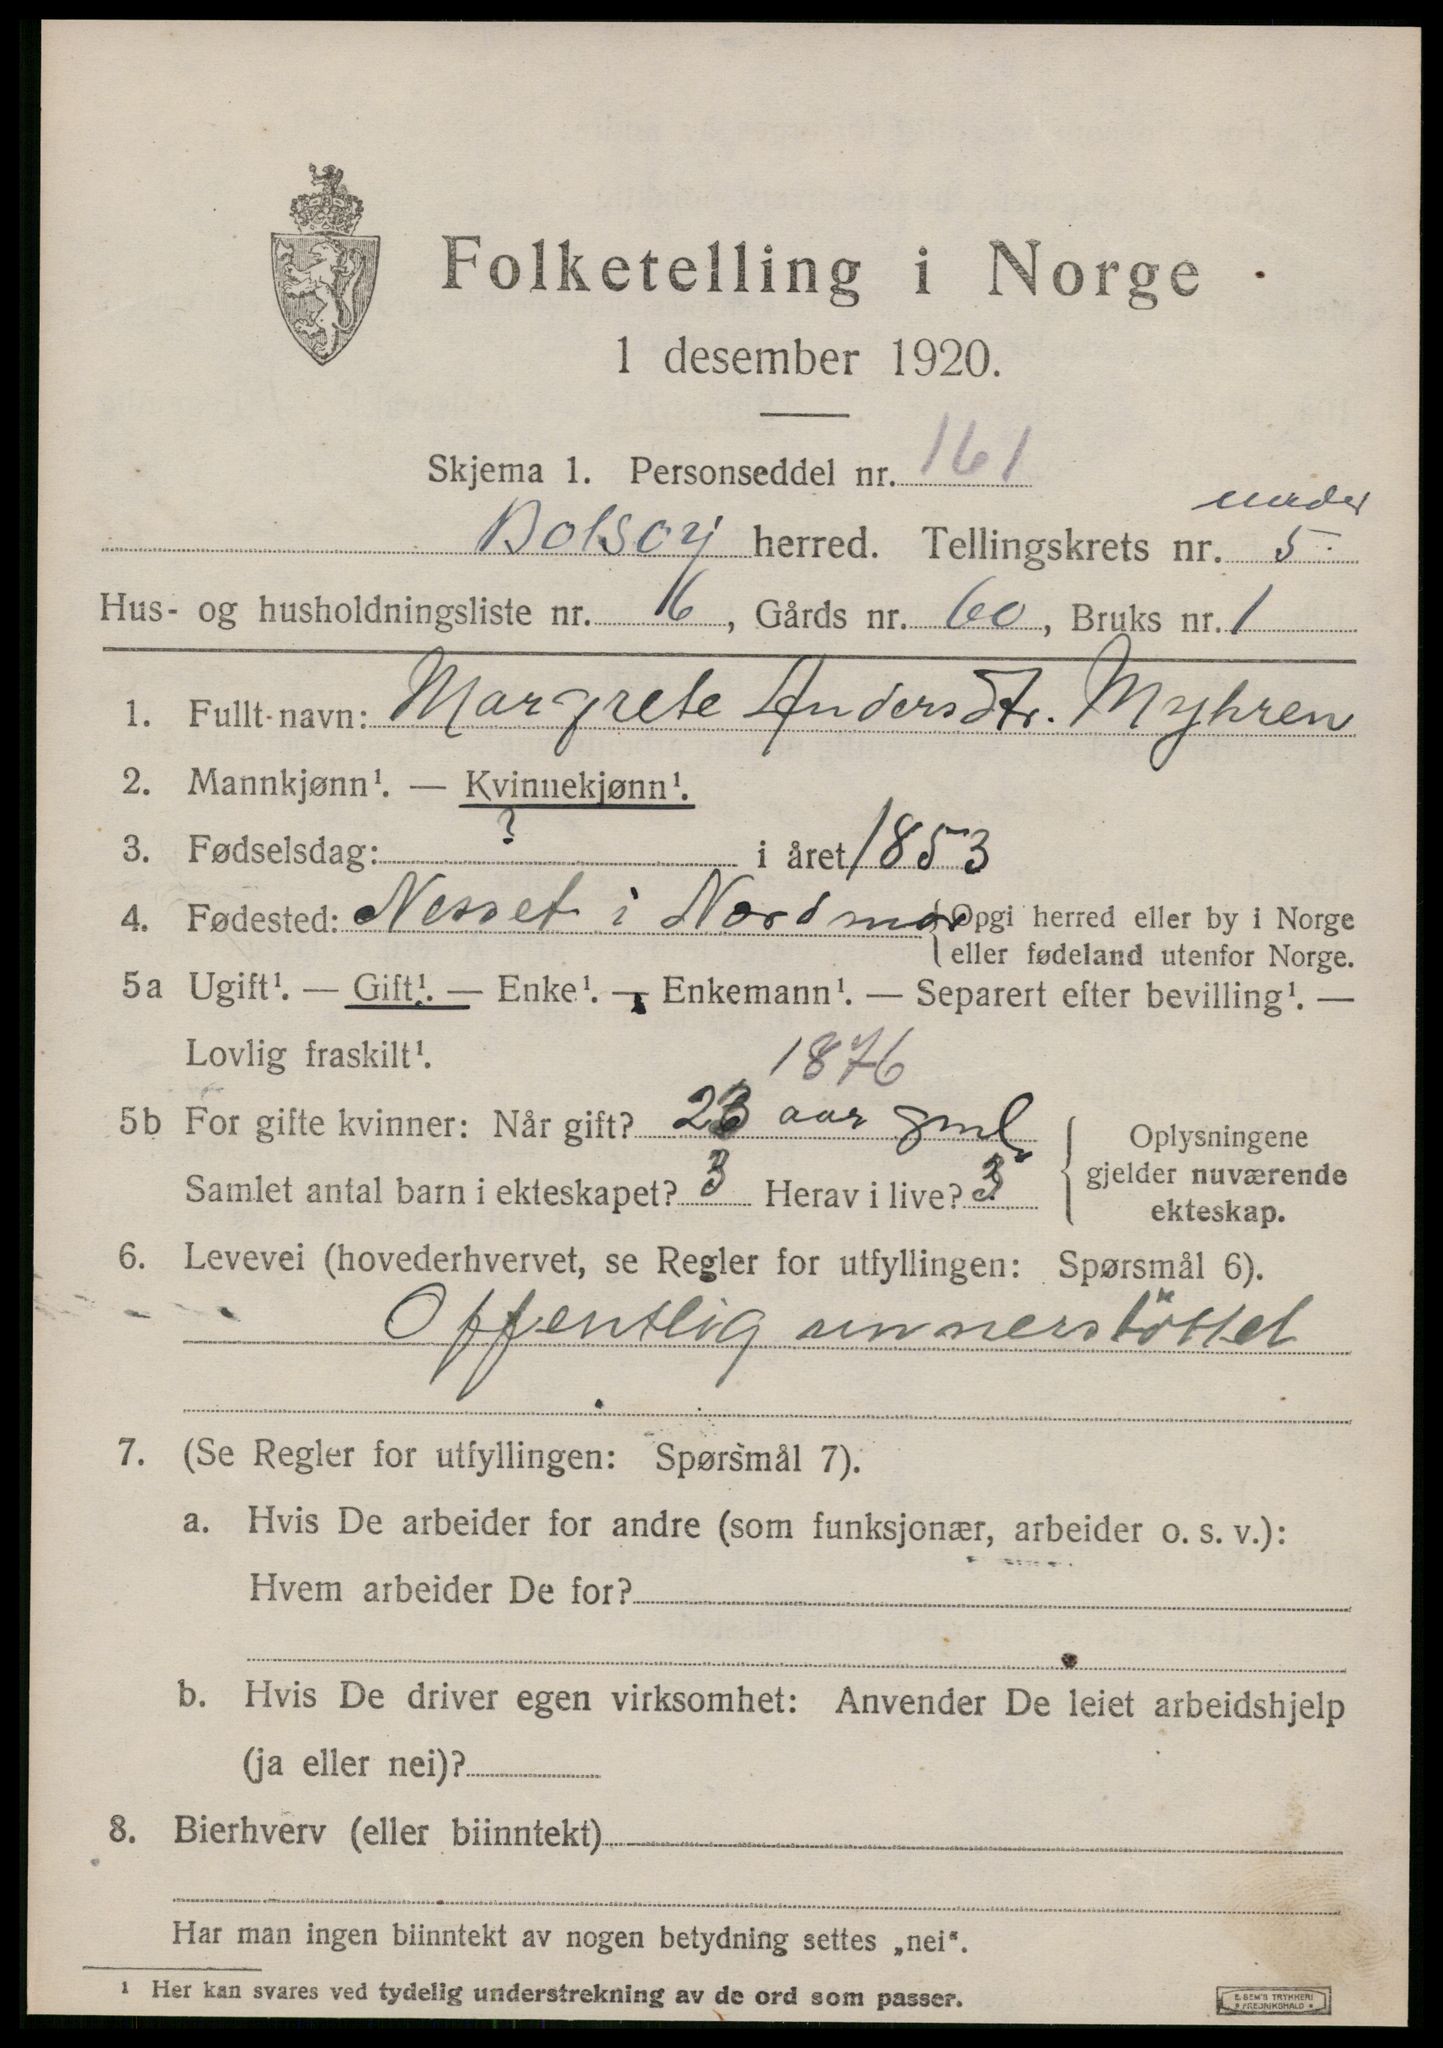 Folketelling i Norge
1 desember 1920.
Skjema 1. Personseddel nr. 161
under
Bolsøy herred. Tellingskrets nr. 5
Hus- og husholdningsliste nr. 6, Gårds nr. 60, Bruks nr. 1
1. Fullt navn: Margrete Andersdtr. Myhren
2. Mannkjønn¹. — Kvinnekjønn¹.
3. Fødselsdag: ? i året 1853
4. Fødested: Nesset i Nordmør {Opgi herred eller by i Norge
eller fødeland utenfor Norge.
5a Ugift¹. — Gift¹. — Enke¹. — Enkemann¹. — Separert efter bevilling¹. —
Lovlig fraskilt¹.
1876
5b For gifte kvinner: Når gift? 23 aar gml
Samlet antal barn i ekteskapet? 3 Herav i live? 3
Oplysningene
gjelder nuværende
ekteskap.
6. Levevei (hovederhvervet, se Regler for utfyllingen: Spørsmål 6).
Offentlig unnerstöttet
7. (Se Regler for utfyllingen: Spørsmål 7).
a. Hvis De arbeider for andre (som funksjonær, arbeider o. s. v.):
Hvem arbeider De for?
b. Hvis De driver egen virksomhet: Anvender De leiet arbeidshjelp
(ja eller nei)?
8. Bierhverv (eller biinntekt)
Har man ingen biinntekt av nogen betydning settes „nei“.
¹ Her kan svares ved tydelig understrekning av de ord som passer.
E. SEM'S TRYKKERI
FREDRIKSHALD